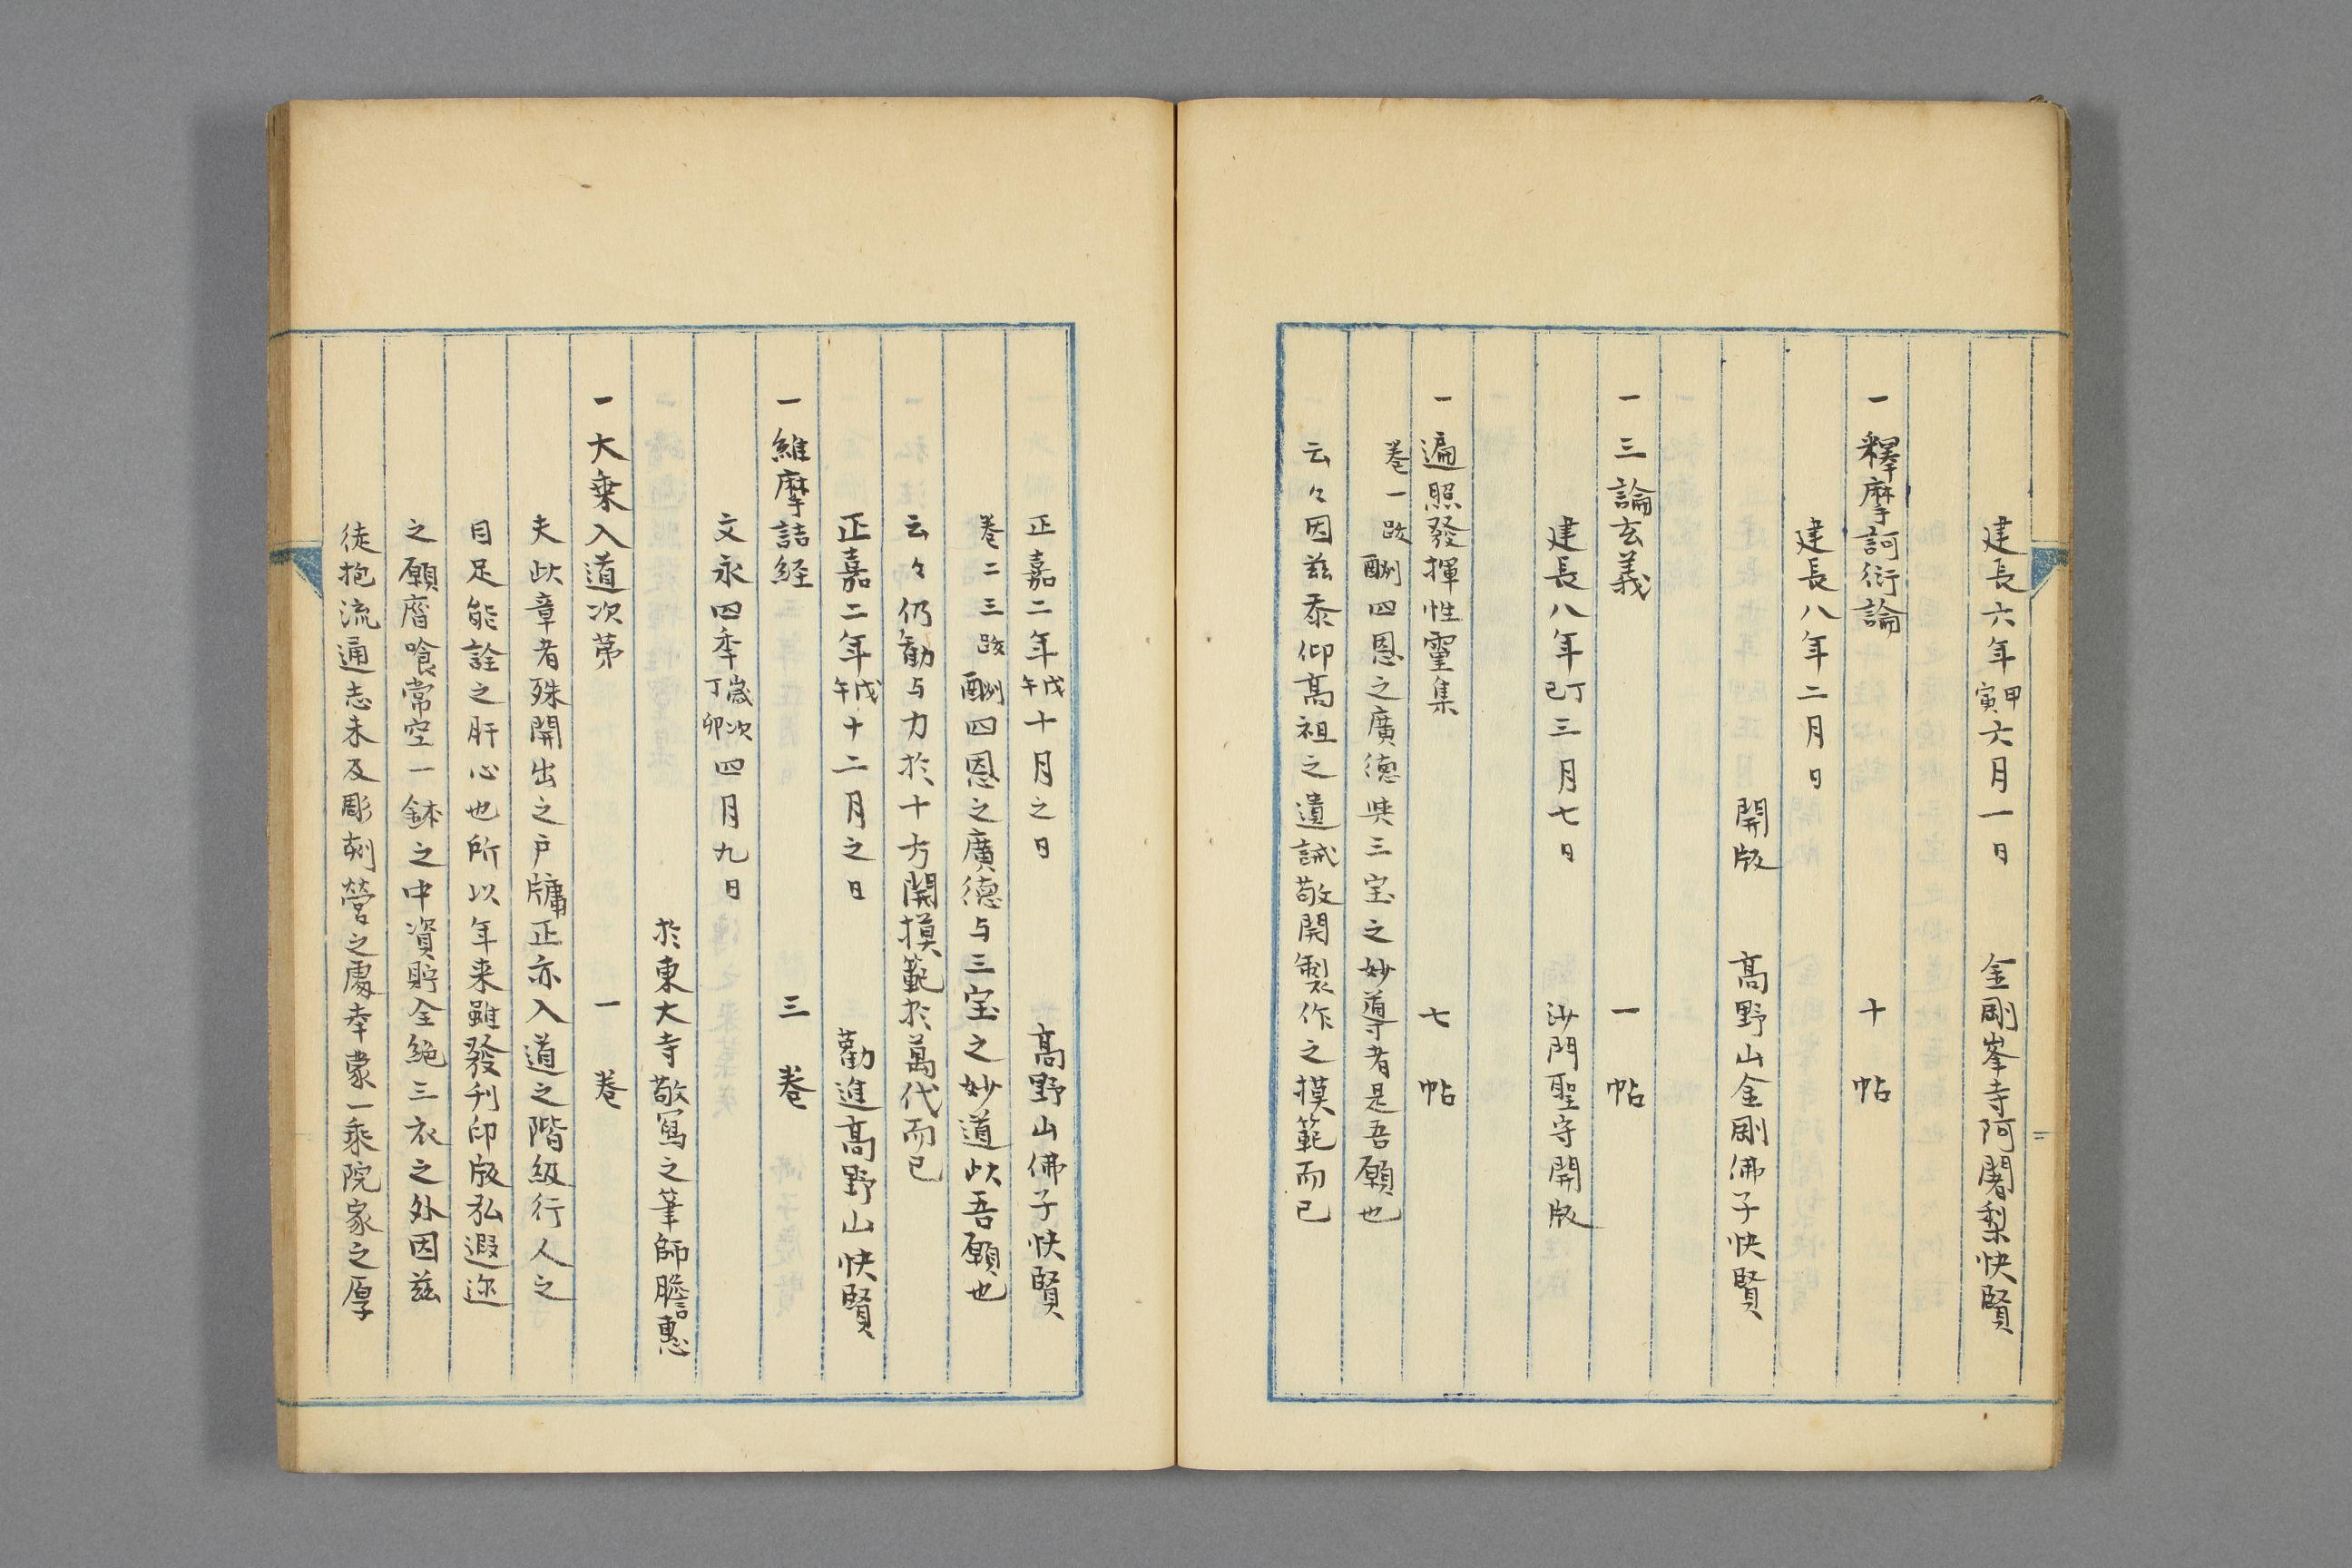 建長六年甲寅六月一日　金剛峯寺阿闍梨快賢
一釋摩訶衍論　十帖
建長八年二月日
開版　高野山金剛佛子快賢
一三論玄義　一帖
建長八年丁巳三月七日　沙門聖守開版
一遍照發揮性霊集　七帖
卷一跋酬四恩之廣徳與三宝之妙導者是吾願也
云々因茲忝仰高祖之遺誡敬開製作之摸範而已
正嘉二年戊午十月之日　高野山佛子快賢
卷二三跋酬四恩之廣德与三宝之妙道此吾願也
云々仍勧与力於十方開摸範於萬代而已
正嘉二年戊午十二月之日　勸進高野山快賢
一維摩詰経　三卷
文永四季歳次丁卯四月九日
於東大寺敬寫之筆師膽惠
一大乗入道次第　一卷
夫此章者殊開出之戸牖正亦入道之階級行人之
目足能詮之肝心也所以年来雖發刋印版弘遐迩
之願脣喰常空一鉢之中資貯全絶三衣之外因茲
徒抱流通志未及彫刻營之處幸蒙一乘院家之厚